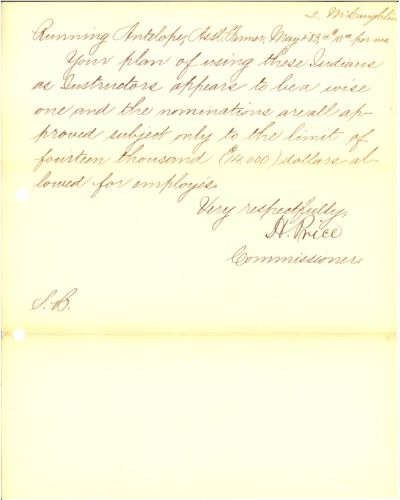 J. McLaughlin
Running Antelope, Asst. Farmer, May 1 83, $10.00 per mo
Your plan of using these Indians
as Instructors appears to be a wise
one and the nominations are all ap-
proved subject only to the limit of
fourteen thousand ($14.000) dollars al-
lowed for employés.
Very respectfully,
H. Price
Commissioner.
S. B.